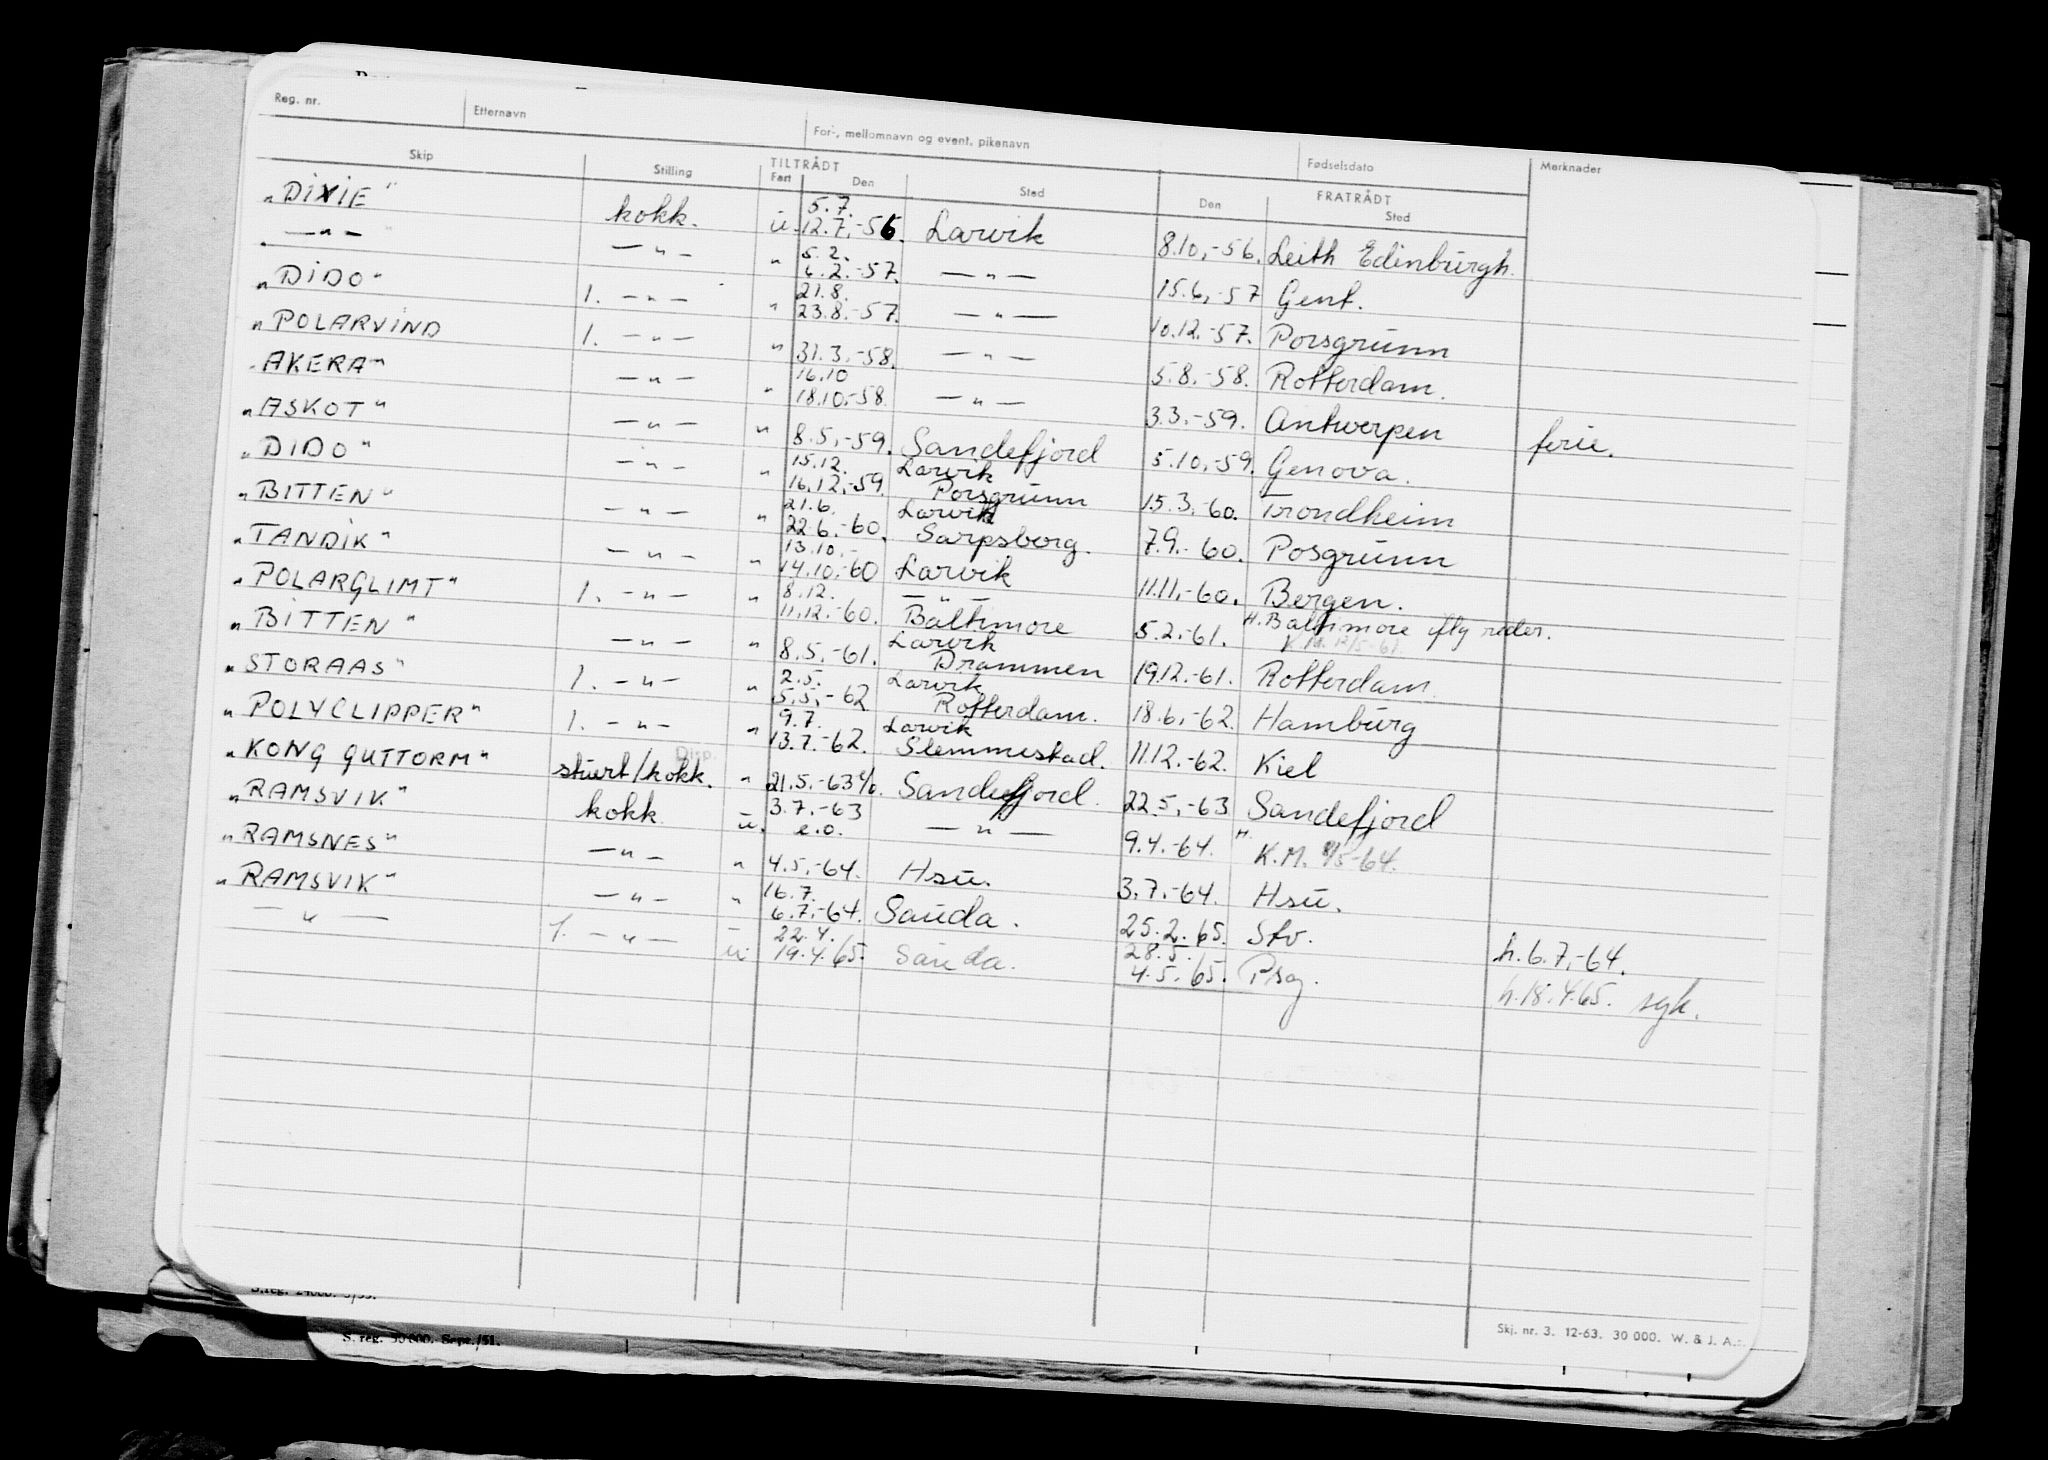 Reg. nr. Etternavn For-, mellomnavn og event. pikenavn Fødselsdato Merknader
Skip Stilling TILTRÅDT FRATRÅDT
Fart Den Sted Den Sted
"DIXIE" kokk. u. 5.7. 12.7.-56. Larvik 8.10.-56. Leith Edinburgh.
—"— —"— " 5.2. 6.2.-57. —"— 15.6.-57 Gent.
"DIDO" 1. —"— " 21.8. 23.8.-57. —"— 10.12.-57. Porsgrunn
"POLARVIND 1. —"— " 31.3.-58. —"— 5.8.-58. Rotterdam.
"AKERA" —"— " 16.10 18.10.-58. —"— 3.3.-59. Antwerpen ferie.
"ASKOT" —"— " 8.5.-59. Sandefjord 5.10.-59. Genova.
"DIDO" —"— " 15.12. Larvik 16.12.-59. Porsgrunn 15.3.-60. Trondheim
"BITTEN" —"— " 21.6. Larvik 22.6.-60. Sarpsborg. 7.9.-60. Posgrunn
"TANDIK" —"— " 13.10.- 14.10.-60 Larvik 11.11.-60. Bergen.
"POLARGLIMT" 1. —"— " 8.12. —"— 11.12.-60. Baltimore 5.2.-61. H. Baltimore iflg reder.
K.M. 12/5-61.
"BITTEN" —"— " Larvik 8.5.-61. Drammen 19.12.-61. Rotterdam.
"STORAAS" 1. —"— " 2.5. Larvik 5.5.-62 Rotterdam. 18.6.-62. Hamburg
"POLYCLIPPER" 1. —"— " 9.7. Larvik 13.7.-62. Slemmestad. 11.12.-62. Kiel
Disp.
"KONG GUTTORM" stuert/kokk. " 21.5.-63 Sandefjord. 22.5.-63 Sandefjord
"RAMSVIK" kokk u. 3.7.-63 e.o. —"— 9.4.-64. " K.M. 8/5-64.
"RAMSNES" —"— " 4.5.-64. Hsu. 3.7.-64. Hsu.
"RAMSVIK" —"— " 16.7. 6.7.-64. Sauda. 25.2.65. Stv. h.6.7.-64.
—"— 1. —"— u. 22.4. 19.4.65. Sauda. 28.5. 4.5.65. Psg. h.18.4.65. syk.
Skj. nr. 3. 12-63. 30 000. W. & J. A.s.
S.reg. 24000. 5/55.
S. reg. 30 000. Sept./51.